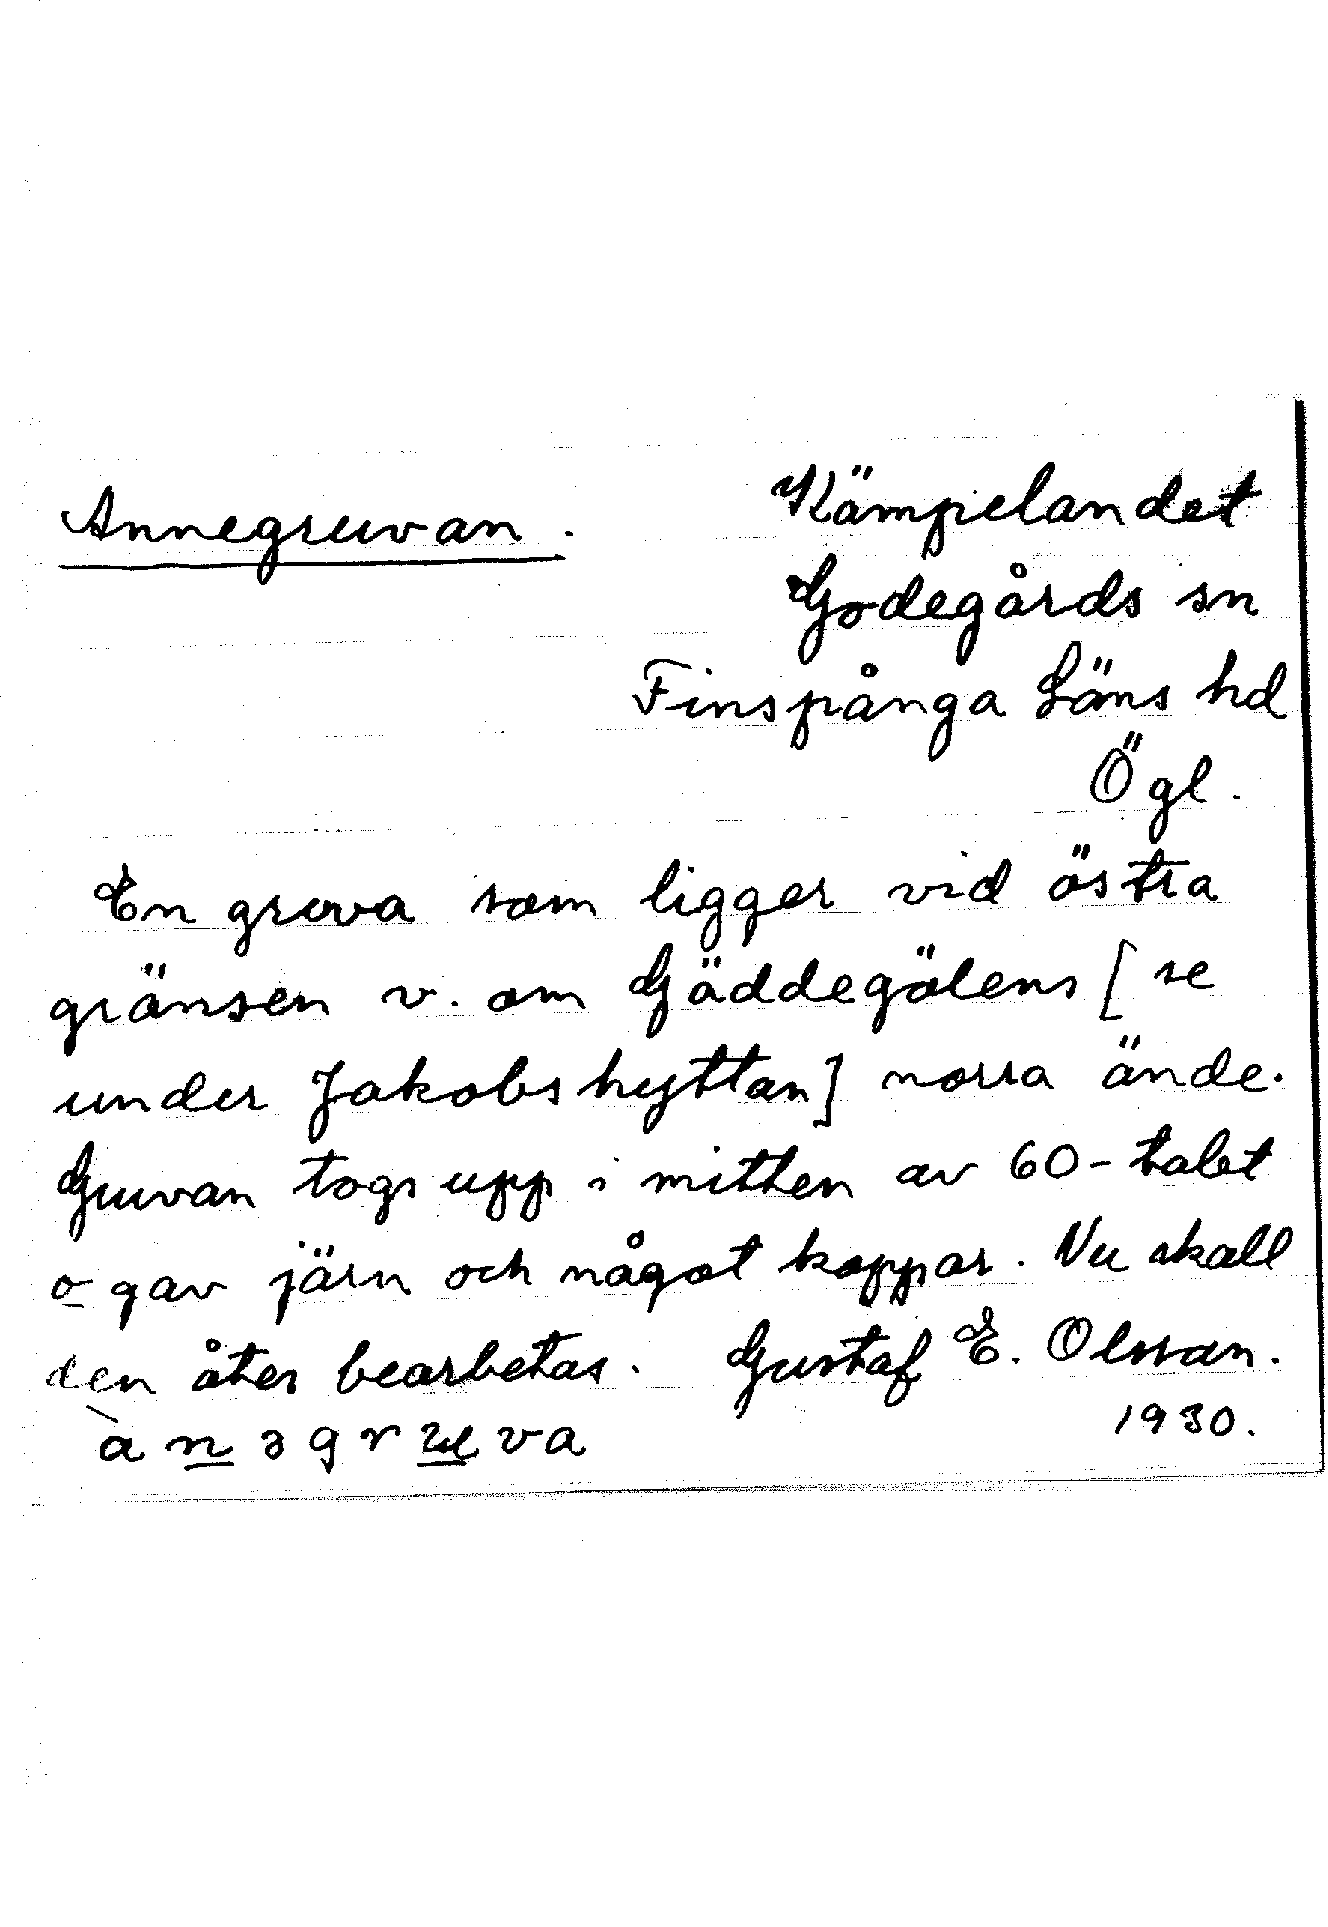 Annegruvan.
Kämpelandet
Godegårds sn
Finspånga Läns hd
Ögl.
En gruva som ligger vid östra
gränsen v. om Gäddegölens [se
under Jakobshyttan] norra ände.
Gruvan togs upp i mitten av 60-talet
o gav järn och något koppar. Nu skall
den åter bearbetas. Gustaf E. Olsson.
ànəgruva 1930.